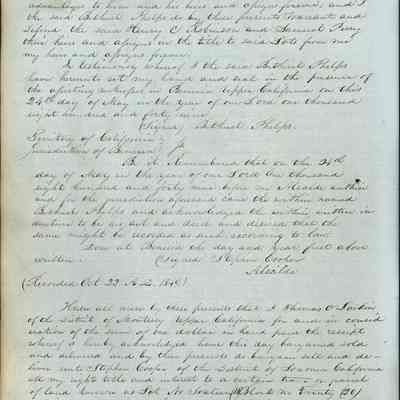 advantages to him and his heirs and assigns forever, and I
the said Bethuel Phelps do by these presents Warrant and
defend the said Henry C Robinson and Samuel Perry
their heirs and assigns in the title to said Lots from me
my heirs and assigns forever.
In testimony whereof I the said Bethuel Phelps
have hereunto set my hand and seal in the presence of
the subscribing witnesses in Benicia Upper California on this
24th day of May in the year of our Lord one thousand
eight hundred and forty nine
(Signed) Bethuel Phelps.
Territory of California
Jurisdiction of Benicia
Be it Remembered that on the 24th
day of May in the year of our Lord One thousand
eight hundred and forty nine before me Alcalde within
and for the jurisdiction aforesaid came the within named
Bethuel Phelps and acknowledged the within written
to be his act and deed and desired that the
same might be recorded as such according to law
Done at Benicia the day and year first above
written. (Signed Stephen Cooper
Alcalde
(Recorded Oct 22 A.D. 1849)
Know all men by these presents that I Thomas O Larkin
of the District of Monterey Upper California for and in consid
eration of the sum of one dollar in hand paid the receipt
whereof is hereby acknowledged have this day bargained sold
and delivered and by these presents do bargain sell and de-
liver unto Stephen Cooper of the District of Sonoma California
all my right title and interest to a certain parcel
of land known as Lot No Block No Twenty (20)